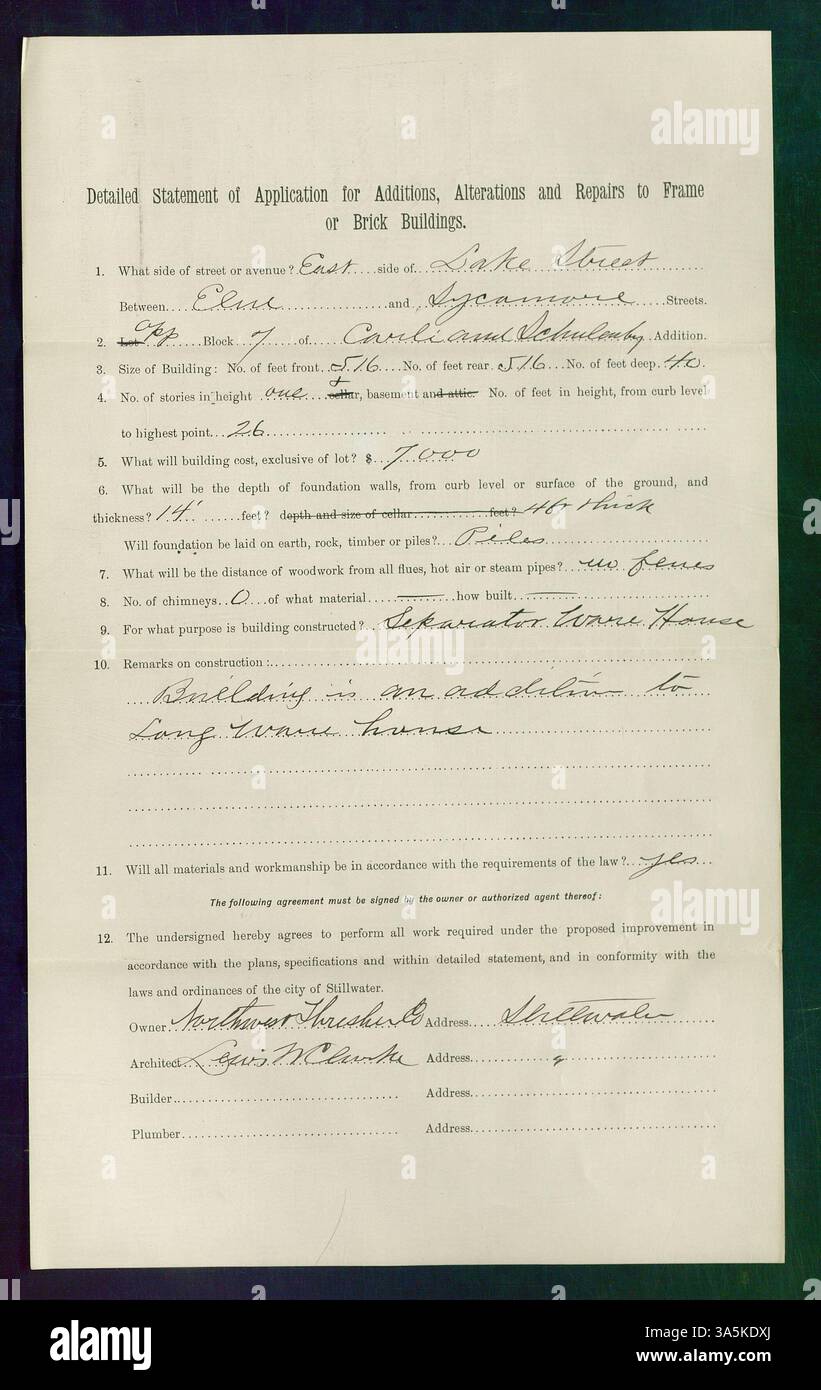 Detailed Statement of Application for Additions, Alterations and Repairs to Frame
or Brick Buildings.
1. What side of street or avenue? East side of Lake Street
Between Elm and Sycamore Streets.
2. Lot Opp Block 7 of Carli and Schulenbg Addition.
3. Size of Building: No. of feet front 516 No. of feet rear 516 No. of feet deep 40.
4. No. of stories in height one + cellar, basement and attic. No. of feet in height, from curb level
to highest point 26
5. What will building cost, exclusive of lot? $ 7000
6. What will be the depth of foundation walls, from curb level or surface of the ground, and
thickness? 14' feet? depth and size of cellar feet? thick
Will foundation be laid on earth, rock, timber or piles? Piles
7. What will be the distance of woodwork from all flues, hot air or steam pipes? no
8. No. of chimneys 0 of what material how built
9. For what purpose is building constructed? Separator Ware House
10. Remarks on construction:
Building is an addition to
Long Ware house
11. Will all materials and workmanship be in accordance with the requirements of the law? yes
The following agreement must be signed by the owner or authorized agent thereof:
12. The undersigned hereby agrees to perform all work required under the proposed improvement in
accordance with the plans, specifications and within detailed statement, and in conformity with the
laws and ordinances of the city of Stillwater.
Owner Northwest Thresher Co Address Stillwater
Architect Lewis W Clarke Address "
Builder Address
Plumber Address
alamy
Image ID: 3A5KDXJ
www.alamy.com